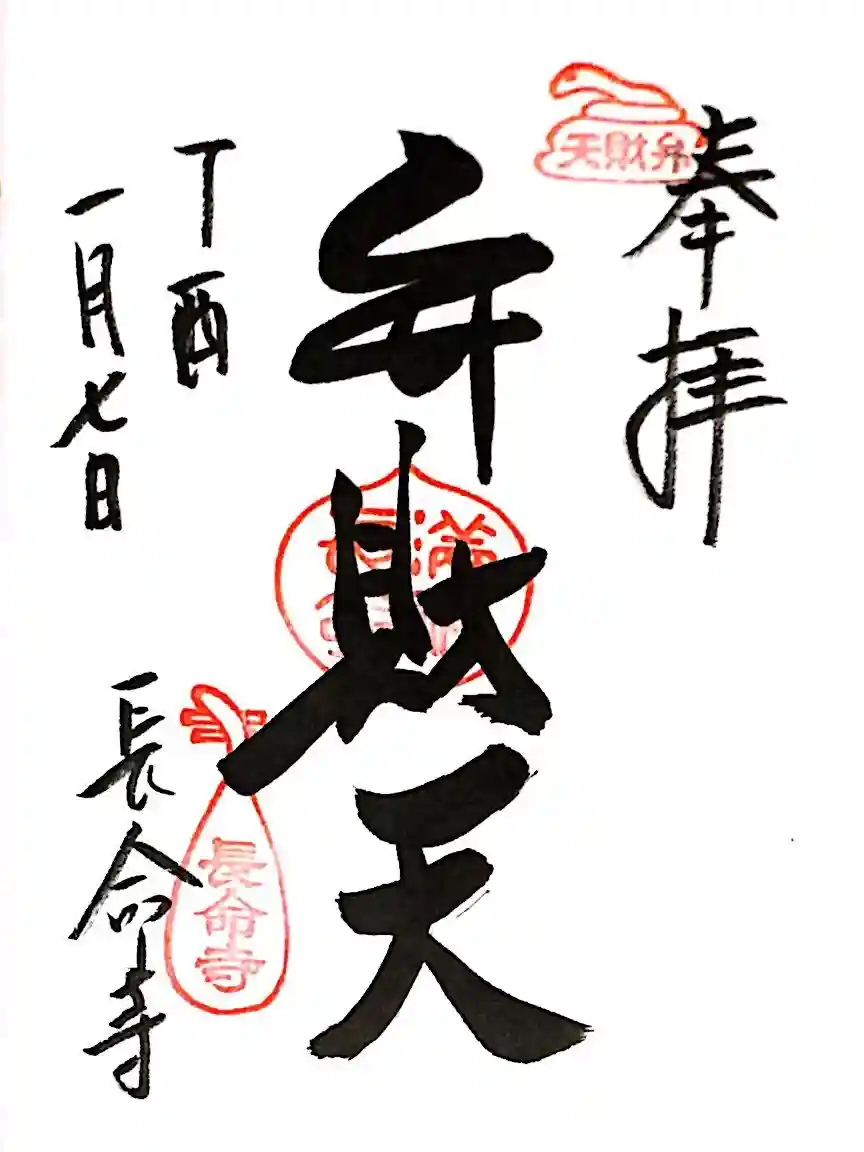 奉拝
弁財天
弁財天
満
丁酉
一月七日
長命寺
長命寺